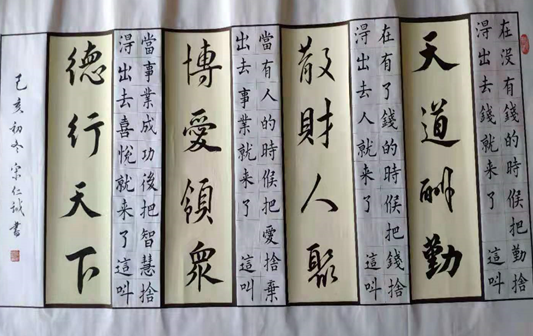 在没有錢的時候把勤捨
得出去錢就来了 這叫
天道酬勤
在有了錢的時候把錢捨
得出去人就来了 這叫
散財人聚
當有人的時候把愛捨棄
出去事業就来了 這叫
博愛領眾
當事業成功後把智慧捨
得出去喜悅就来了 這叫
德行天下
己亥初冬 宋仁誠書